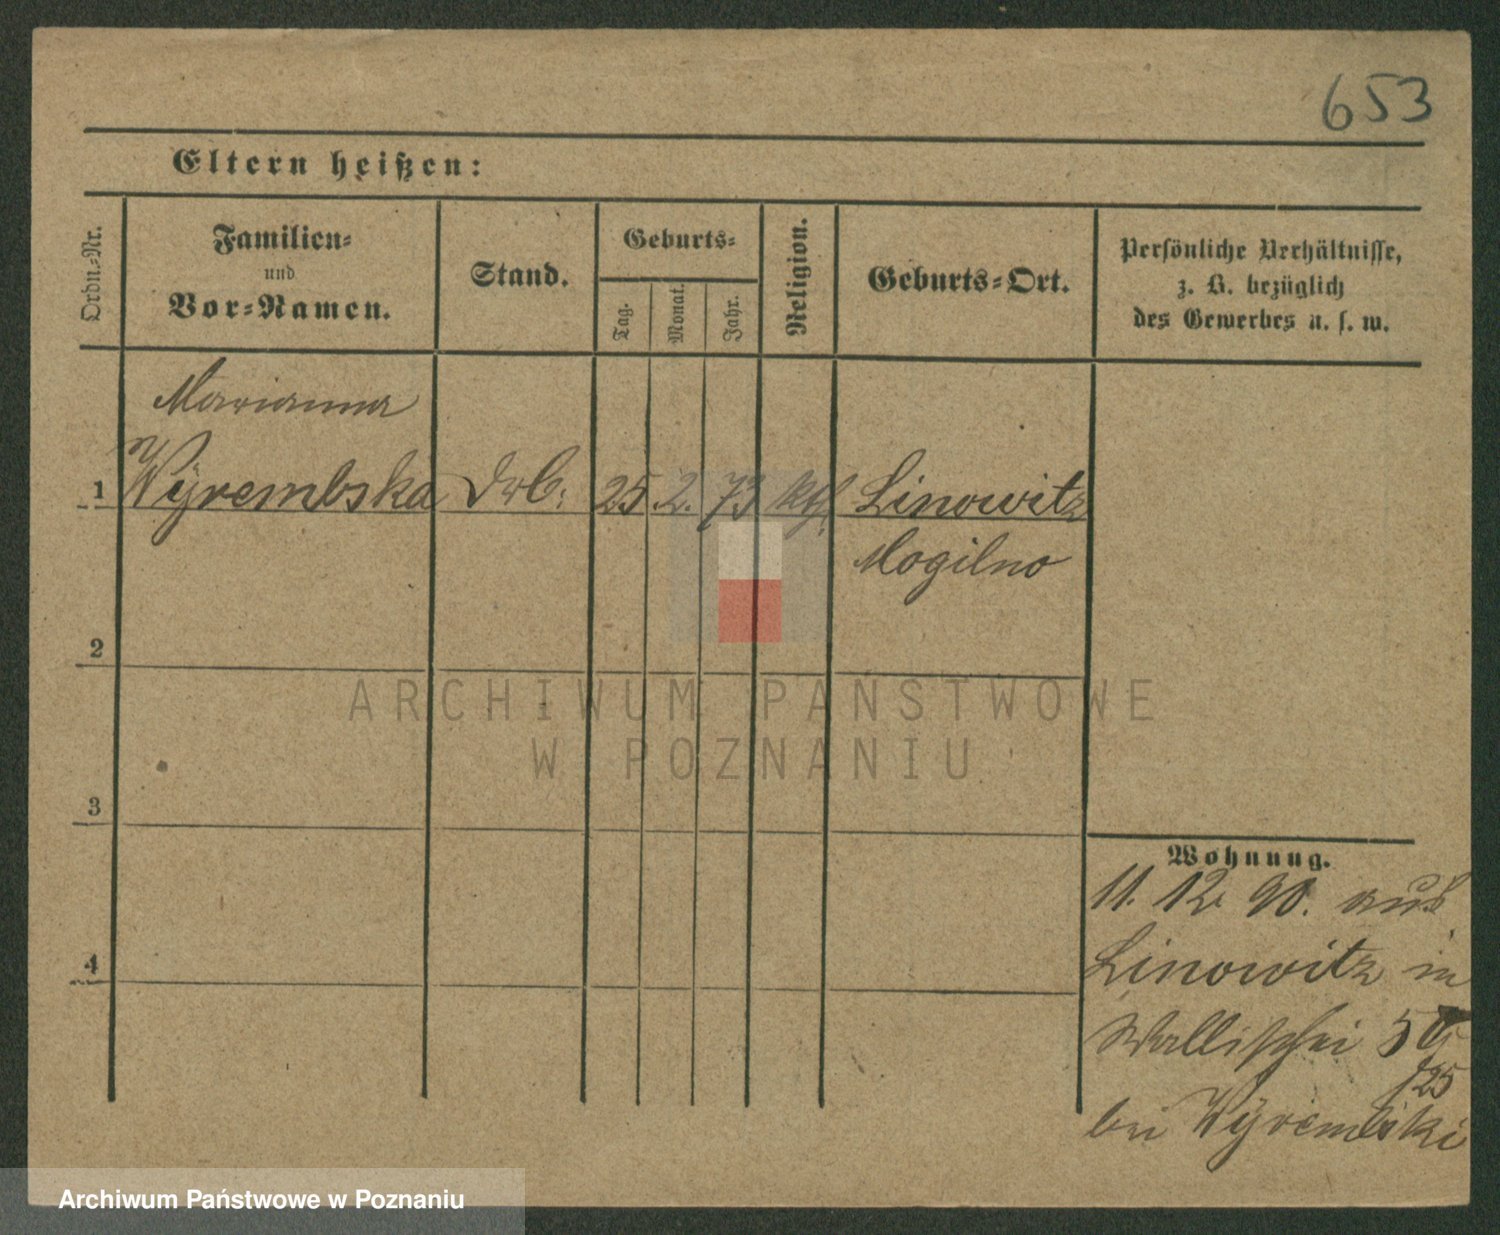 653
Eltern heißen:
Ordn.-Nr.
Familien-
und
Vor-Namen.
Stand.
Geburts-
Tag.
Monat.
Jahr.
Religion.
Geburts-Ort.
Persönliche Verhältnisse,
z. B. bezüglich
des Gewerbes u. s. w.
Marianna
1 Wyrembska 25 2. 73 kth. Linowitz
Mogilno
2
3
4
Wohnung.
11. 12. 90. aus
Linowitz in
Wallischei 5
/25
bei Wyrembski
ARCHIWUM PAŃSTWOWE
W POZNANIU
Archiwum Państwowe w Poznaniu